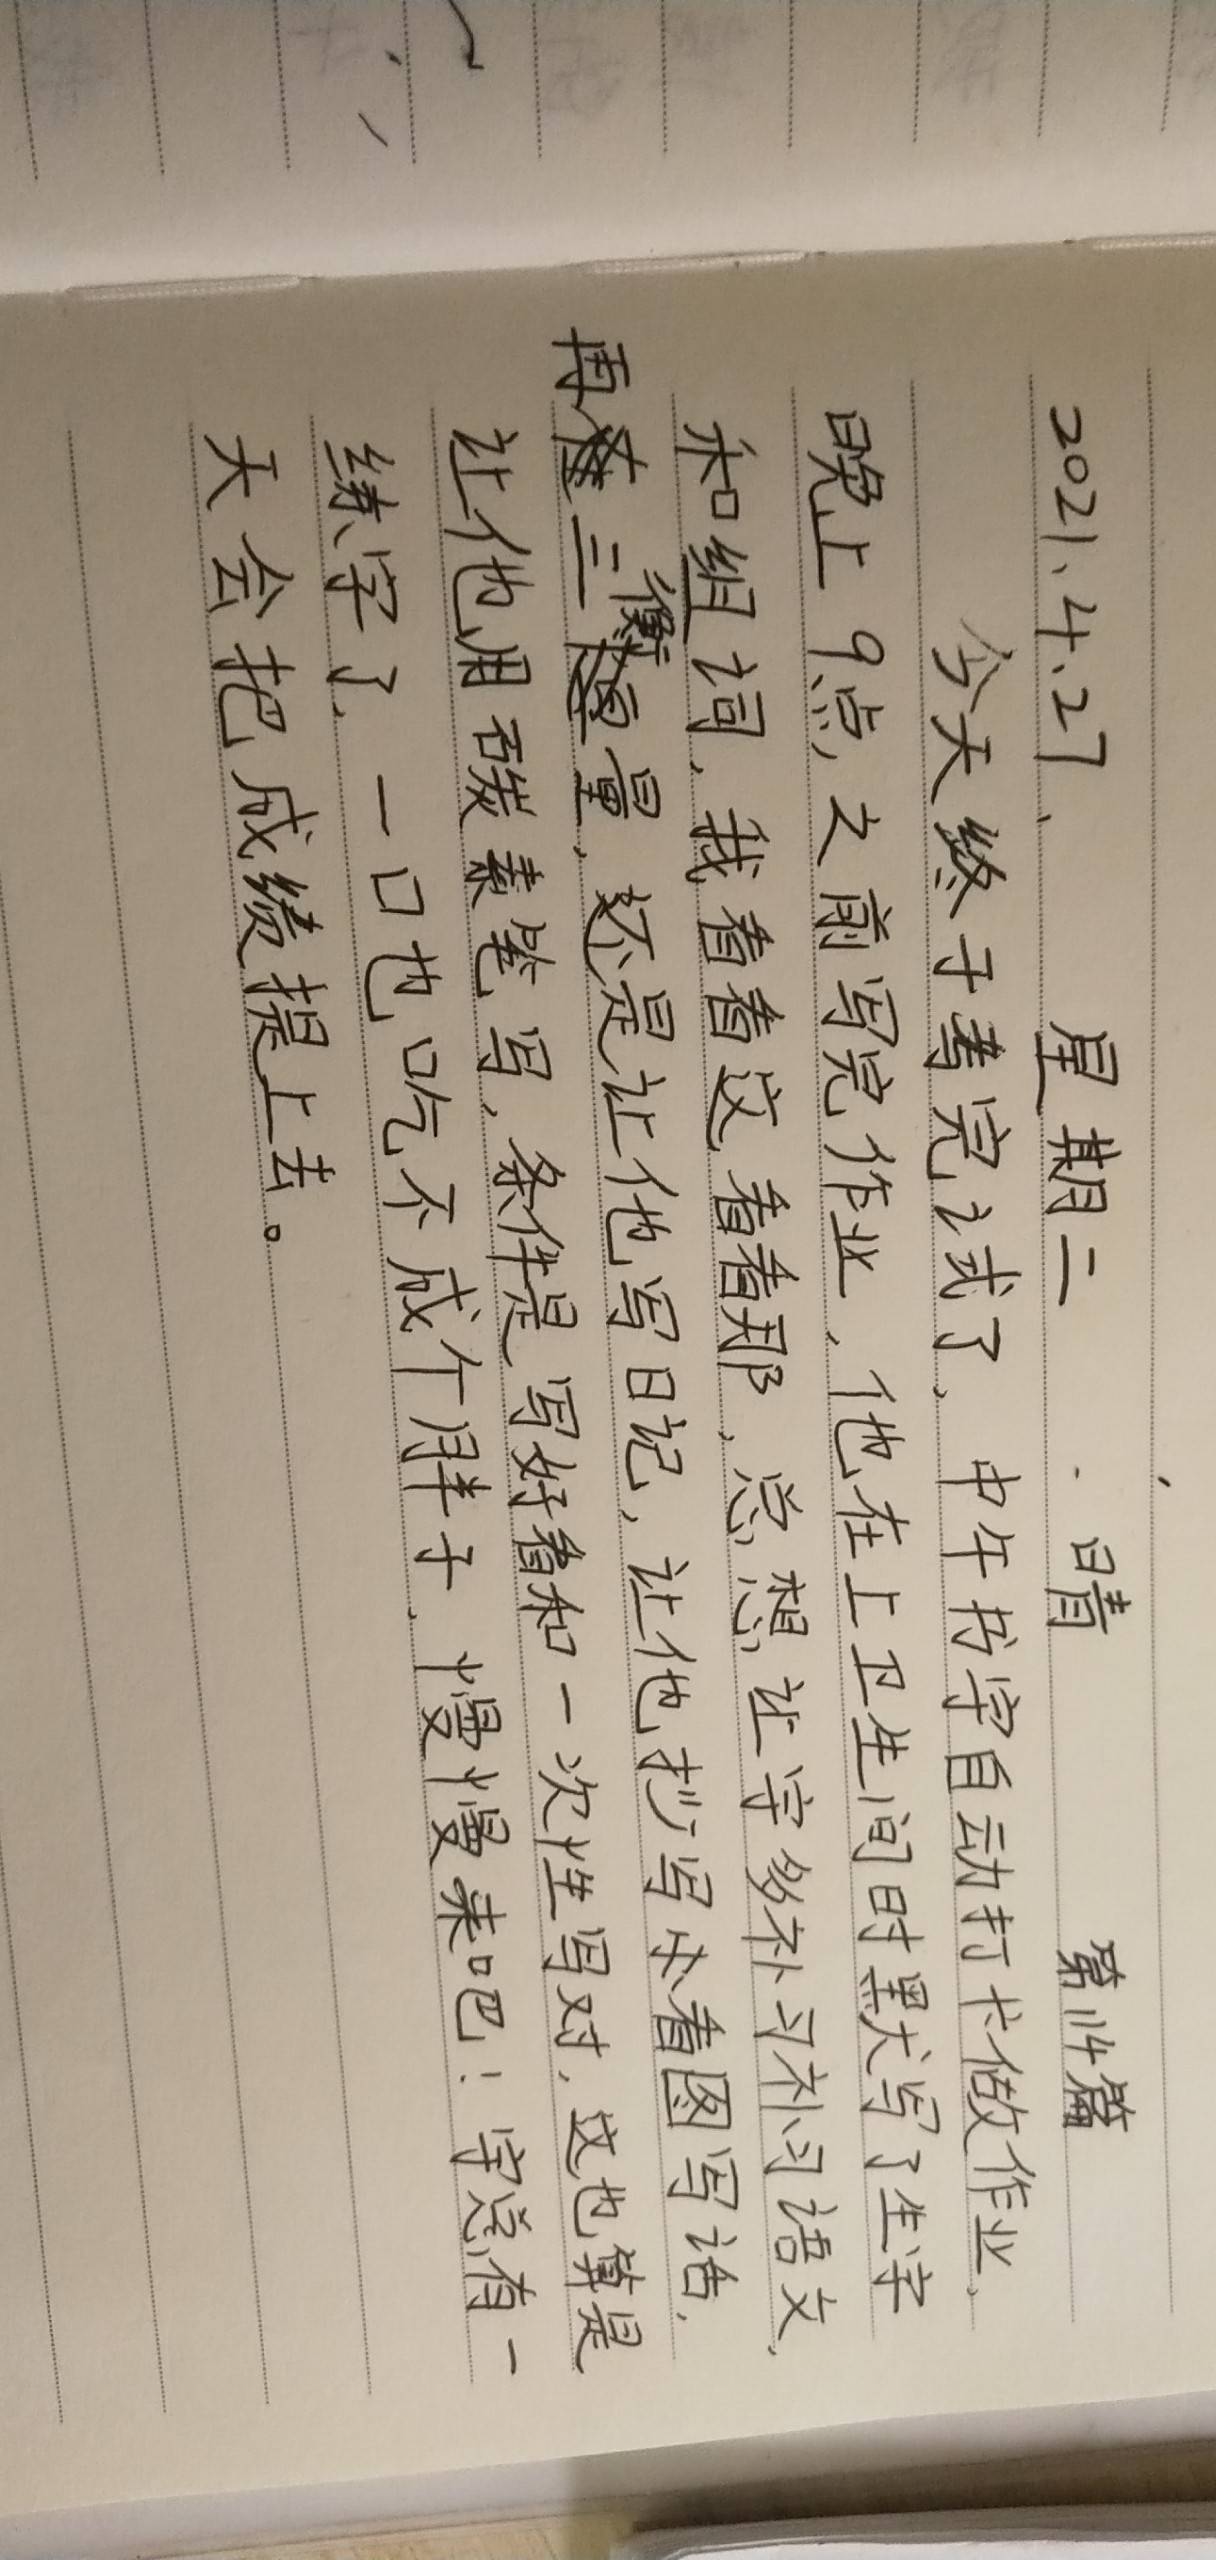 2021、4、27、 星期二 . 晴 第114篇
今天终于考完试了、中午书宇自动打卡做作业、
晚上9点,之前写完作业、他在上卫生间时默写了生字
和组词、我看看这看看那、总想让宇多补习补习语文、
再三衡量、还是让他写日记,让他抄写小看图写话、
让他用碳素笔写,条件是写好看和一次性写对,这也算是
练字了、一口也吃不成个胖子、慢慢来吧!宇总有一
天会把成绩提上去。